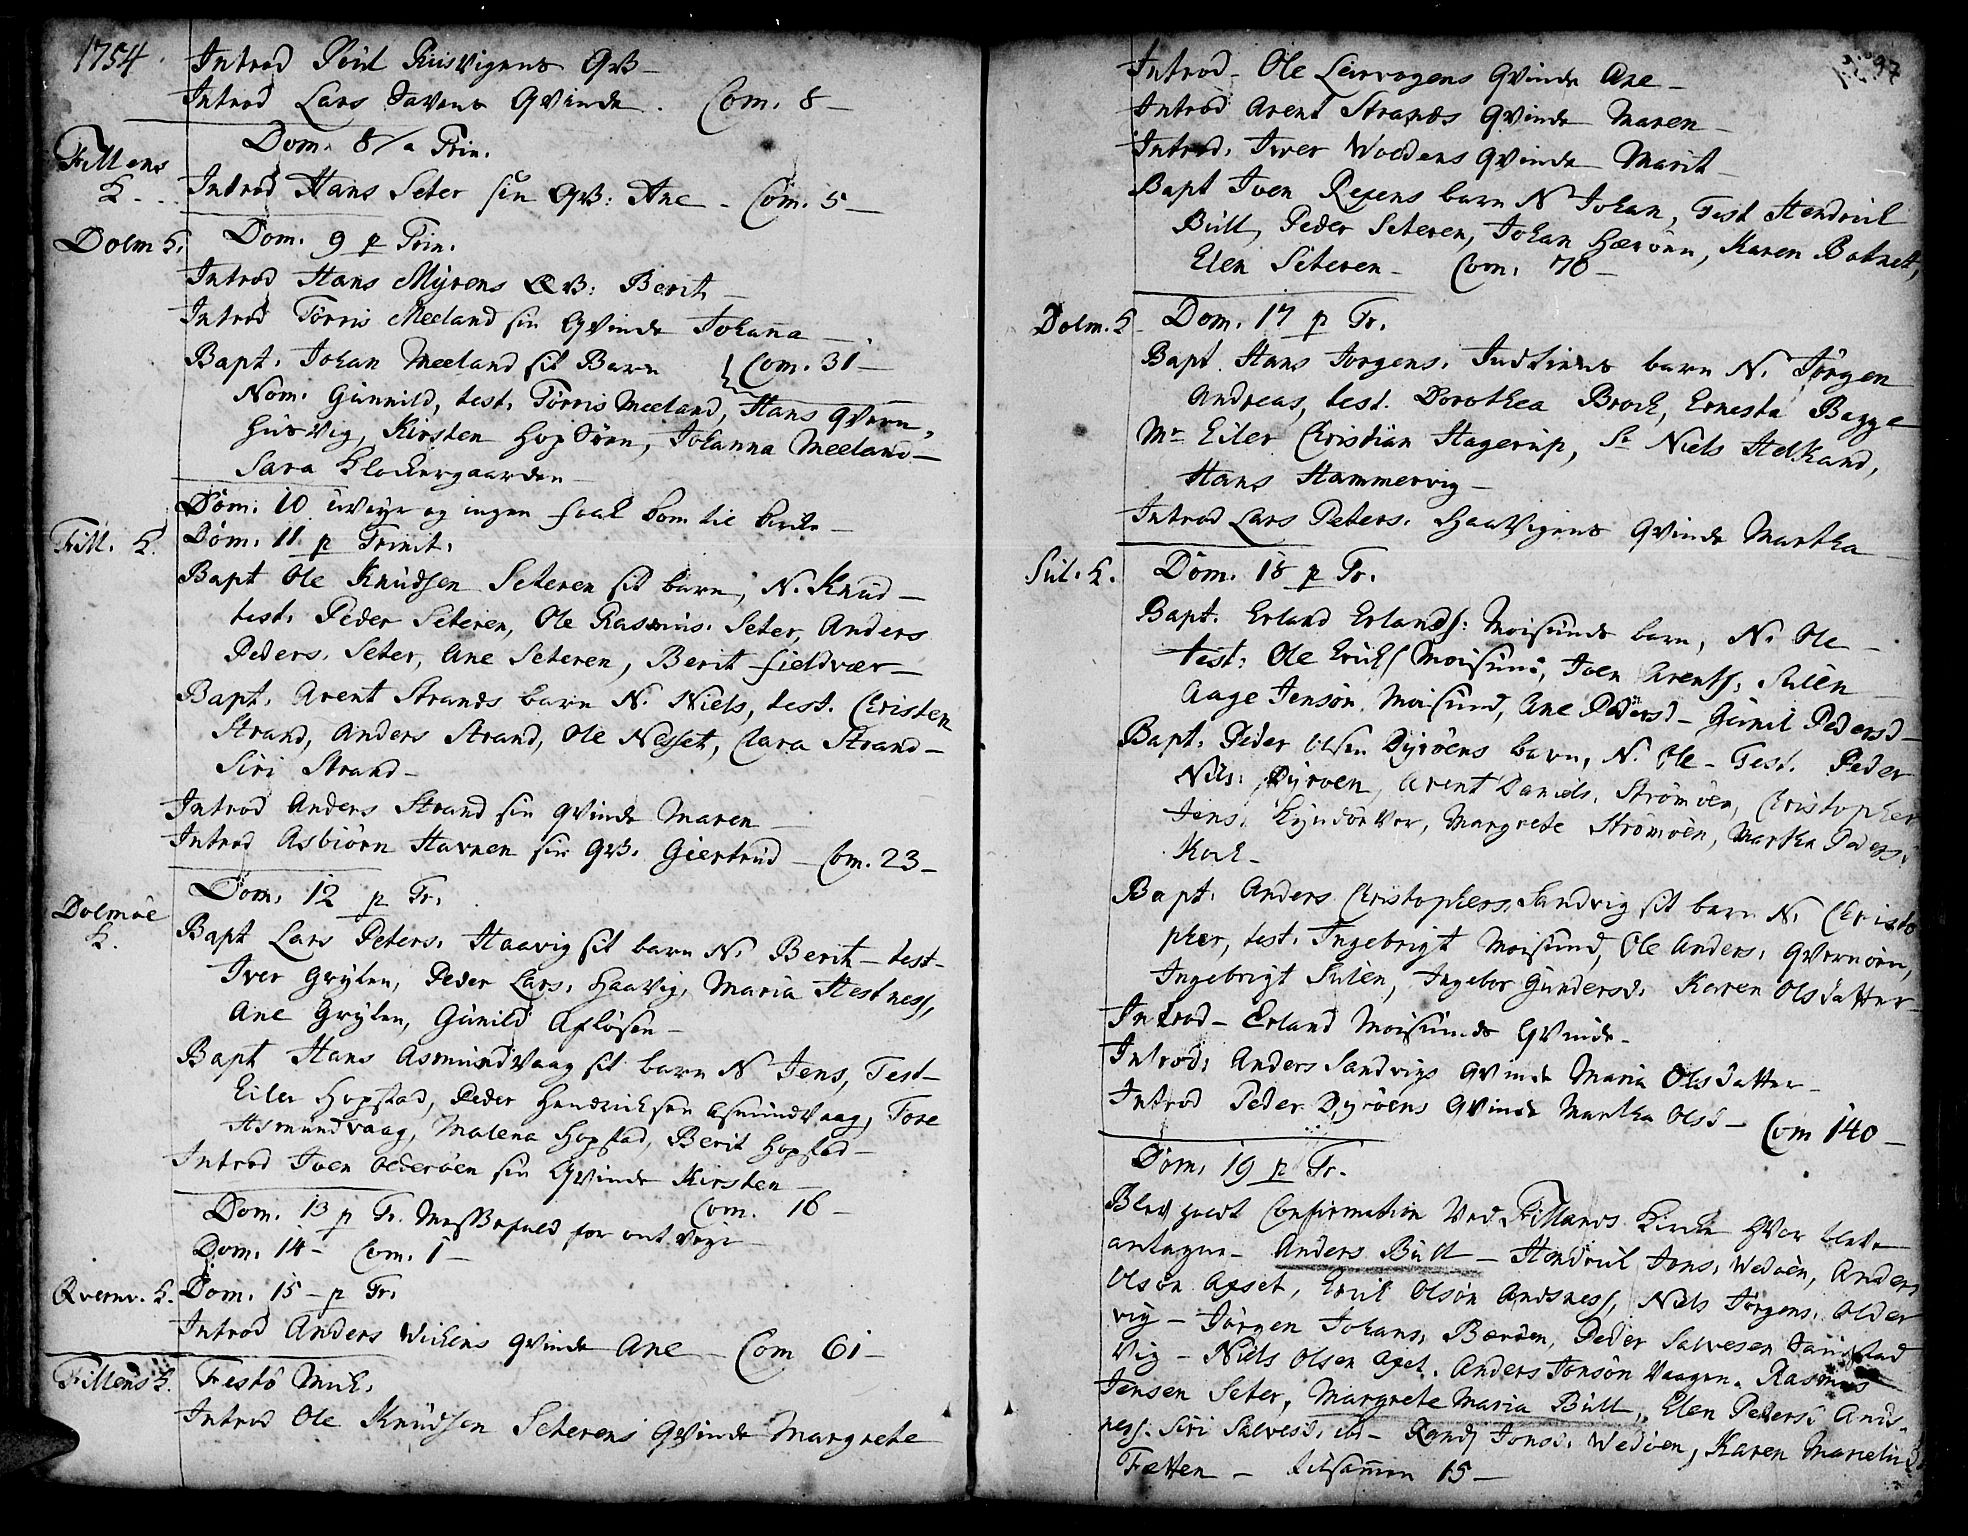 1754.
Introd Poul Kusvigens QvB
Introd Lars Havens Qvinde. Com. 8 —
Fillens K. Dom. 8 a Trin.
Introd Hans Seter sin QvB: Ane — Com. 5 —
Dolm K. Dom. 9 p Trin.
Introd Hans Myrens QvB: Berit —
Introd Torris Meeland sin Qvinde Johana —
Bapt. Johan Meeland sit Barn Com. 31 —
Nom. Gunnild, test. Torris Meeland, Hans Qvern,
husvig, Kirsten Hopsöen, Johanna Meeland —
Sara Klockergaarden
Dom. 10 uveyr og ingen folk kom til kirke —
Fill. K. Dom. 11. p Trinit.
Bapt Ole Knudsen Seteren sit barn, N. Knud —
test. Peder Seteren, Ole Rasmus. Seter, Anders
Peders. Seter, Ane Seteren, Berit Fieldvær —
Bapt. Arent Strands barn N. Niels, test. Christen
Strand, Anders Strand, Ole Nesset, Clara Strand —
Siri Strand —
Introd Anders Strand sin qvinde Maren —
Introd Asbiörn Havnen sin QvB. Giertrud — Com. 23 —
Dolmöe K. Dom. 12 p Tr.
Bapt Lars Peters. Haavig sit barn N. Berit — test —
Iver Grylen, Peder Lars. Haavig, Maria Hestness,
Ane Grylen, Gunild Aflösen —
Bapt Hans Asmundvaag sit barn N Jens, Test —
Eiler Hopstad, Peder Hendricksen Asmundvaag, Tore
Asmundvaag, Malena Hopstad, Berit Hopstad —
Introd Joen Olderöen sin Qvinde Kirsten —
Com. 16 —
Dom. 13 p Tr. Messefald for ont veyr
Dom. 14 — Com. 1 —
Qvernv. K. Dom. 15 — p Tr.
Introd Anders Wickens qvinde Ane — Com 61 —
Fillens K. Festo Mich.
Introd Ole Knudsen Seterens Qvinde Margrete
97
Introd — Ole Leervogens Qvinde Ane —
Introd Arent Strands Qvinde Maren —
Introd. Iver Woldens Qvinde Marit —
Bapt Joen Rexens barn N Johan, Test Hendrick
Bull, Peder Seteren, Johan Hærönn, Karen Botnett,
Elen Seteren — Com. 70 —
Dolm. K. Dom. 17 p Tr.
Bapt. Hans Jorgens. Indtians barn N. Jörgen
Andreas, test. Dorothea Brock, Ernesta Bagge
Mr Eiler Christian Hagerup, Sr Niels Helkand,
Hans Hammervig —
Introd Lars Peters. Haavigens Qvinde Martha
Sul. K. Dom. 18 p Tr.
Bapt. Erland Erlands: Moisunds barn, N. Ole —
test. Ole Ericks Moisund, Joen Arents. Sulen
Aage Jenson. Moisund, Ane Pedersd — Gunil Pedersd —
Bapt. Peder Olsen Dyröens barn, N. Ole — Test. Peder
Nils: Dyroen, Arent Daniels. Strömöen, Christopher
Jens. Kyndörvær, Margrete Strömöen, Martha Peders.
Kock —
Bapt. Anders Christophers. Sandvig sit barn N. Christo
pher, test. Ingebrigt Moisund, Ole Anders. Qvernöen,
Ingebrigt Sulen, Ingebor Gundersd. Karen Olsdatter —
Introd — Erland Moisunds Qvinde —
Introd. Anders Sandvigs Qvinde Maria Olsdatter —
Introd Peder Dyröens Qvinde Martha Olsd — Com 140 —
Dom. 19 p Tr.
Blev holdt Confirmation ved Fillands Kirche hvor bleve
antagne — Anders Bull — Hendrick Jons. Wedöen, Anders
Olsön Apset, Erick Olson Andsness, Niels Jörgens. Older
vig — Jörgen Johans. Bæröen, Peder Salvesen
vig — Niels Olsen Apet. Anders Jonsön Vaagen. Rasmus
Jensen Seter, Margrete Maria Bull, Elen Pedersd Ands-
ness. Siri Salvesd. ibd — Randj Jonsd. Wedöen, Karen
Fætten — tilsamen 15 —